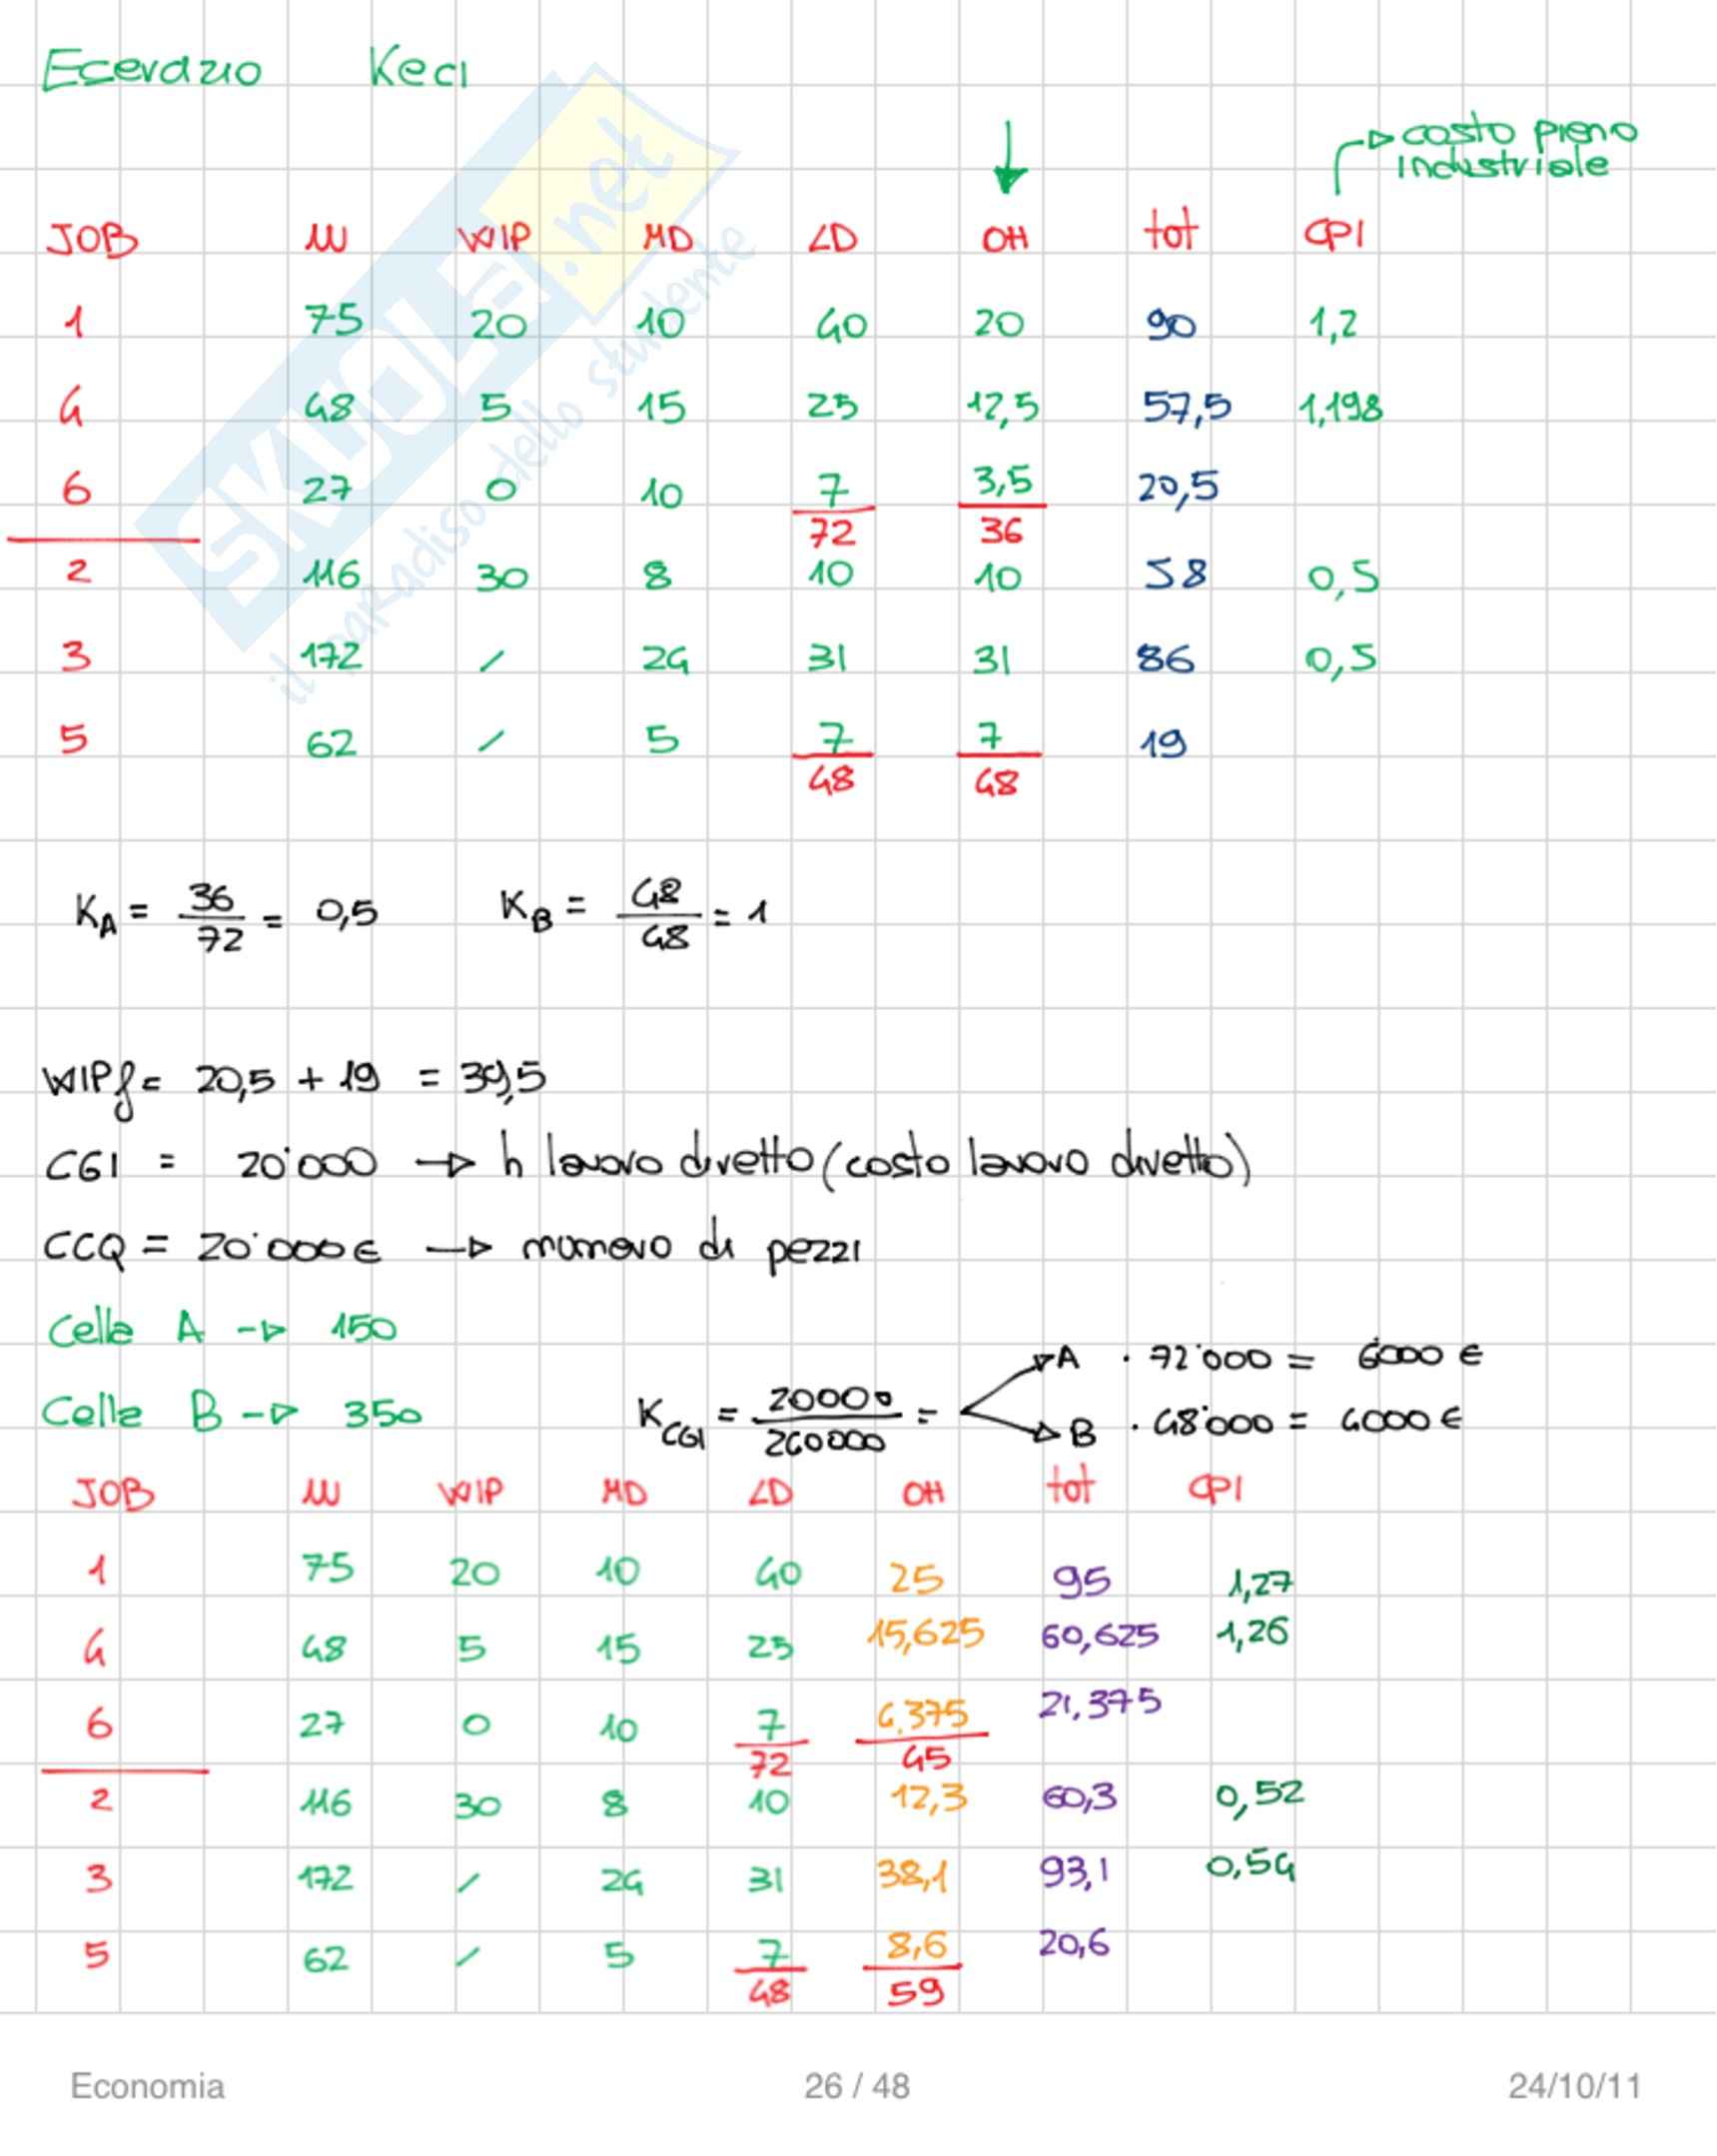 Ecerdazio Keci
costo pieno
industriale
JOB u WIP MD LD OH tot CPI
1 75 20 10 40 20 90 1,2
4 48 5 15 25 12,5 57,5 1,198
6 27 0 10 7 3,5 20,5
72 36
2 116 30 8 10 10 58 0,5
3 172 / 24 31 31 86 0,5
5 62 / 5 7 7 19
48 48
KA = 36/72 = 0,5 KB = 48/48 = 1
WIPf = 20,5 + 19 = 39,5
CGI = 20'000 → h lavoro diretto (costo lavoro diretto)
CCQ = 20'000€ → numero di pezzi
Cella A → 150
Cella B → 350
KCGI = 20000/240000 =
A · 72'000 = 6000 €
B · 48'000 = 4000 €
JOB u WIP MD LD OH tot CPI
1 75 20 10 40 25 95 1,27
4 48 5 15 25 15,625 60,625 1,26
6 27 0 10 7 4,375 21,375
72 45
2 116 30 8 10 12,3 60,3 0,52
3 172 / 24 31 38,1 93,1 0,54
5 62 / 5 7 8,6 20,6
48 59
SKUOLA.net
il paradiso dello studente
Economia 26 / 48 24/10/11